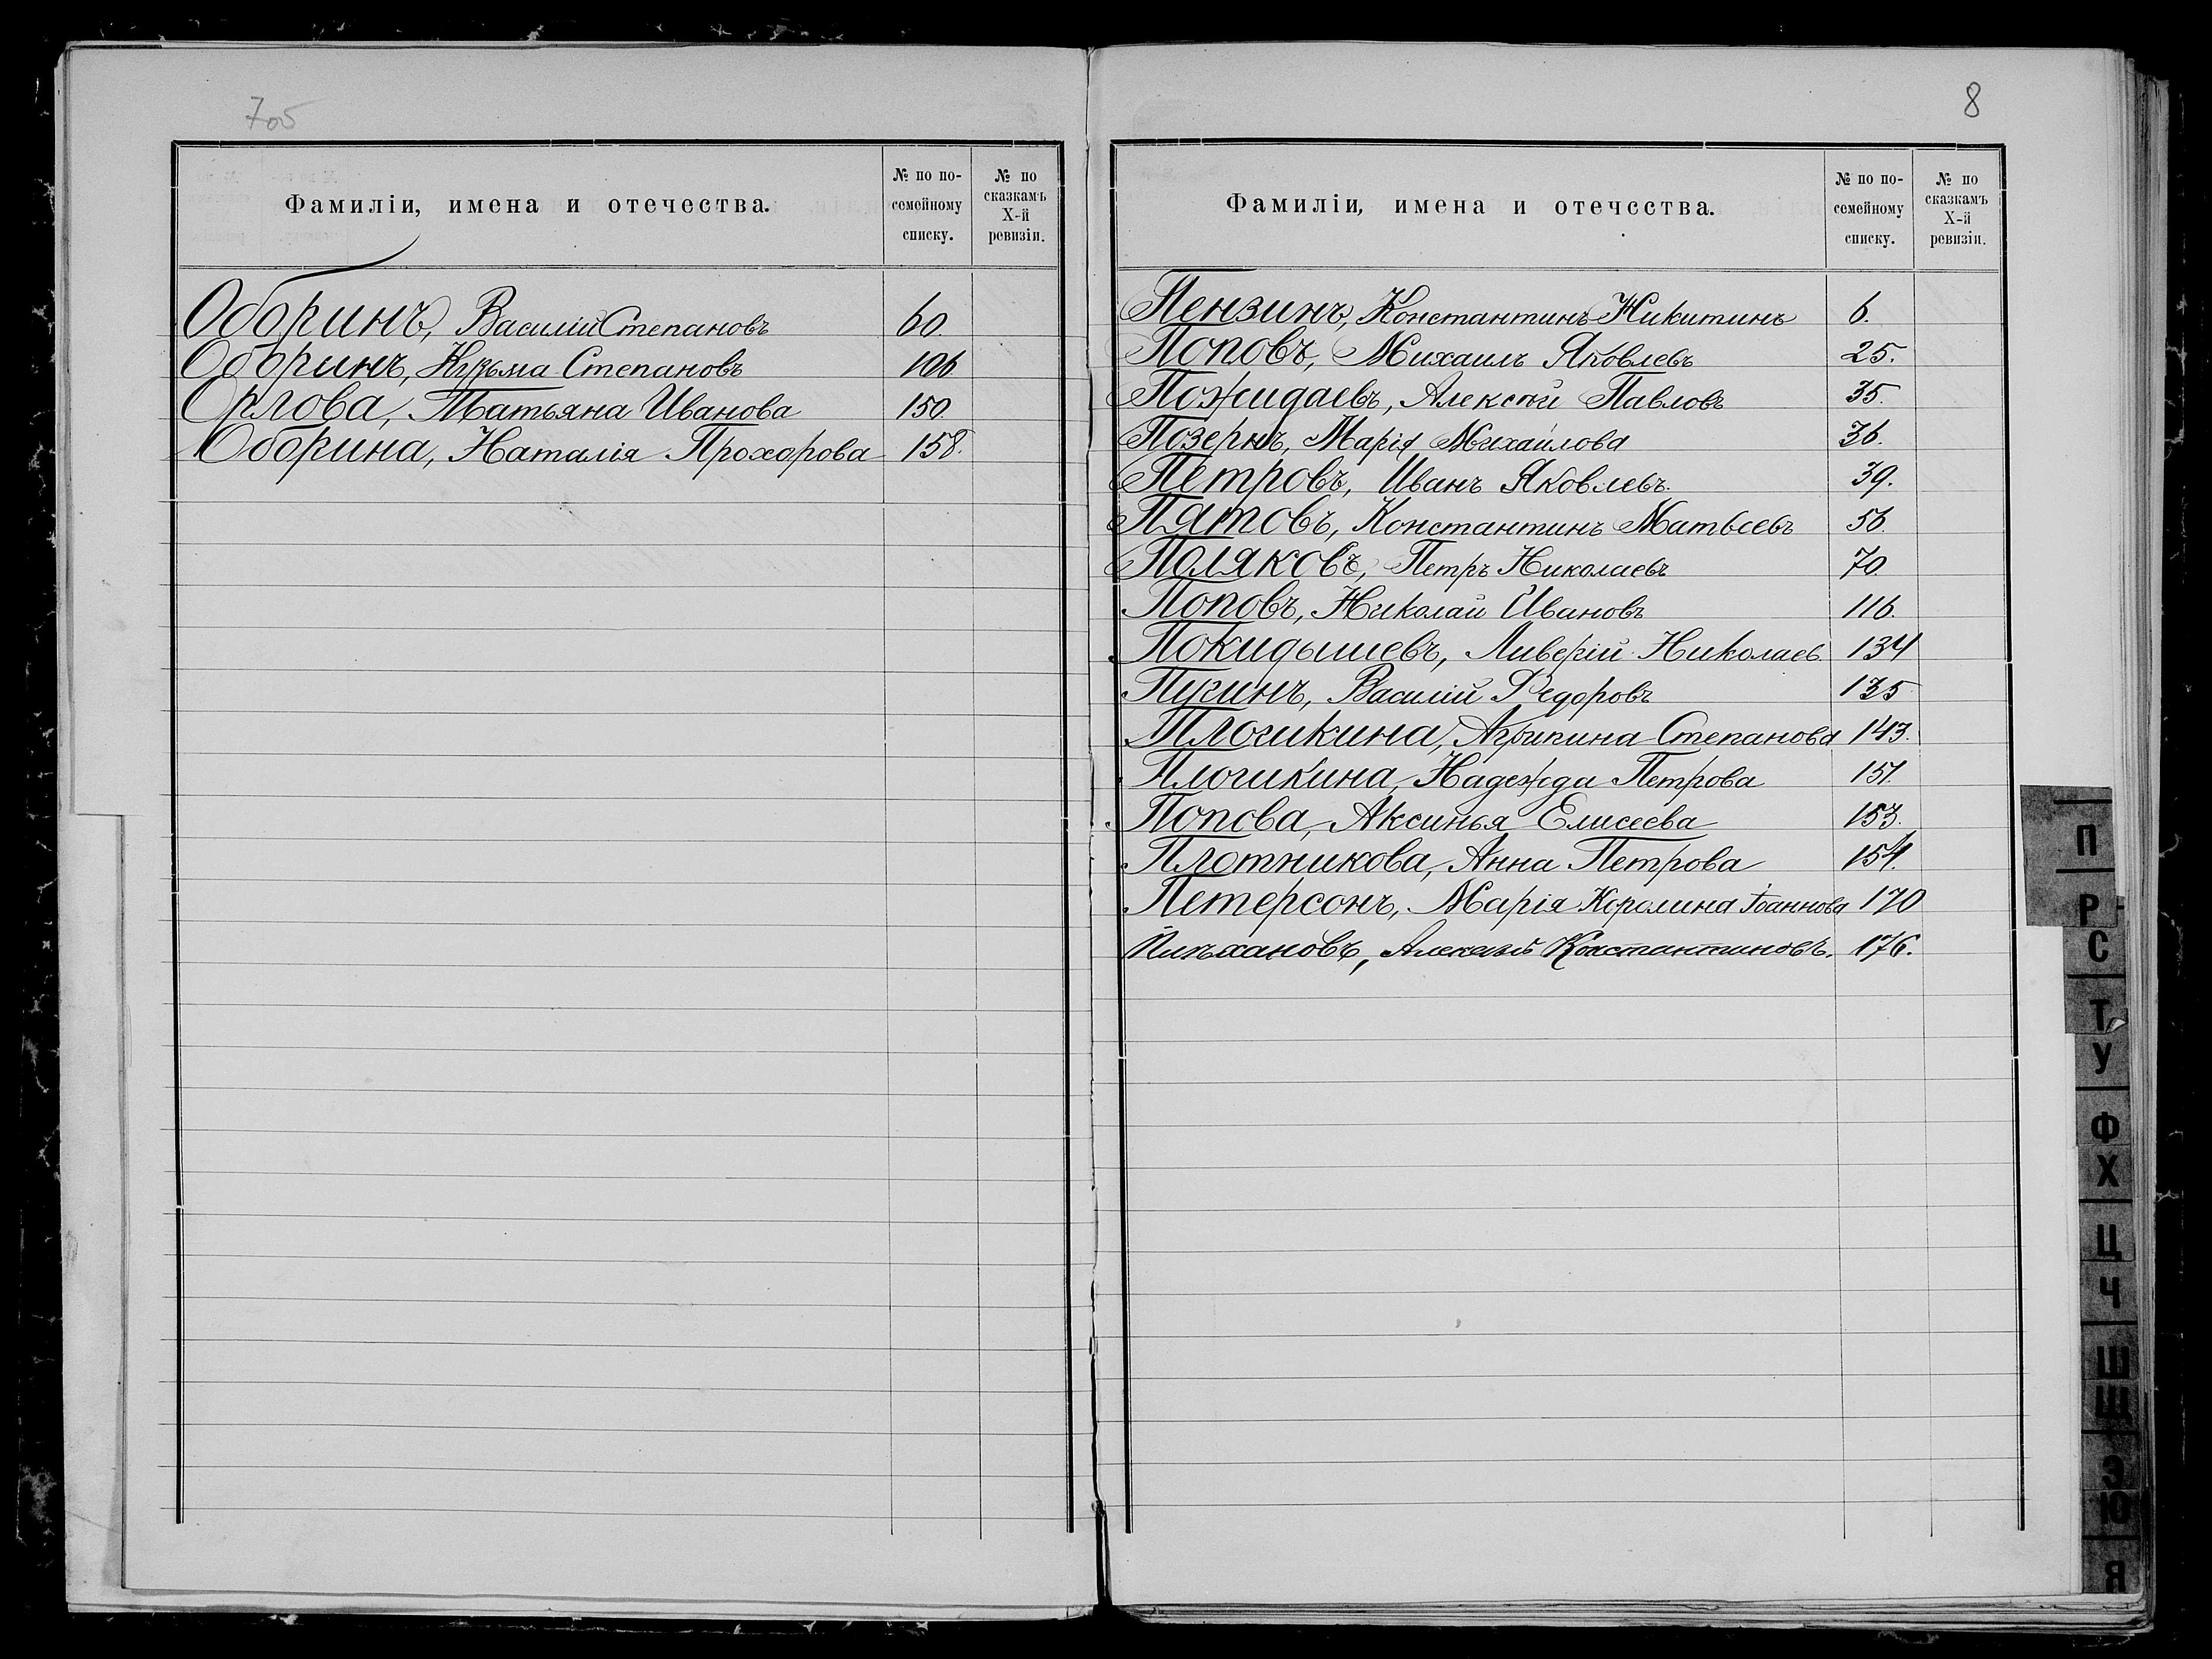 7об
Фамиліи, имена и отечества.
№ по по-
семейному
списку.
№ по
сказкамъ
X-й
ревизіи.
Оборинъ, Василій Степановъ 60.
Оборинъ, Кузьма Степановъ 106
Орлова, Татьяна Иванова 150.
Оборина, Наталія Прохорова 158.
8
Фамиліи, имена и отечества.
№ по по-
семейному
списку.
№ по
сказкамъ
X-й
ревизіи.
Пензинъ, Константинъ Никитинъ 6.
Поповъ, Михаилъ Яковлевъ 25.
Пожидаевъ, Алексѣй Павловъ 35.
Позернъ, Марія Михайлова 36.
Петровъ, Иванъ Яковлевъ. 39.
Пятовъ, Константинъ Матвѣевъ 56.
Поляковъ, Петръ Николаевъ 70.
Поповъ, Николай Ивановъ 116.
Покидышевъ, Ливерій Николаев. 134
Пукинъ, Василій Федоровъ 135
Агрипина Степанова 143.
Надежда Петрова 151.
Попова, Аксинья Елисеева 153.
Плотникова, Анна Петрова 154.
Петерсонъ, Марія Каролина Іоаннова 170
Алексѣй Константиновъ. 176.
П
Р
С
Т
У
Ф
Х
Ц
Ч
Ш
Щ
Э
Ю
Я